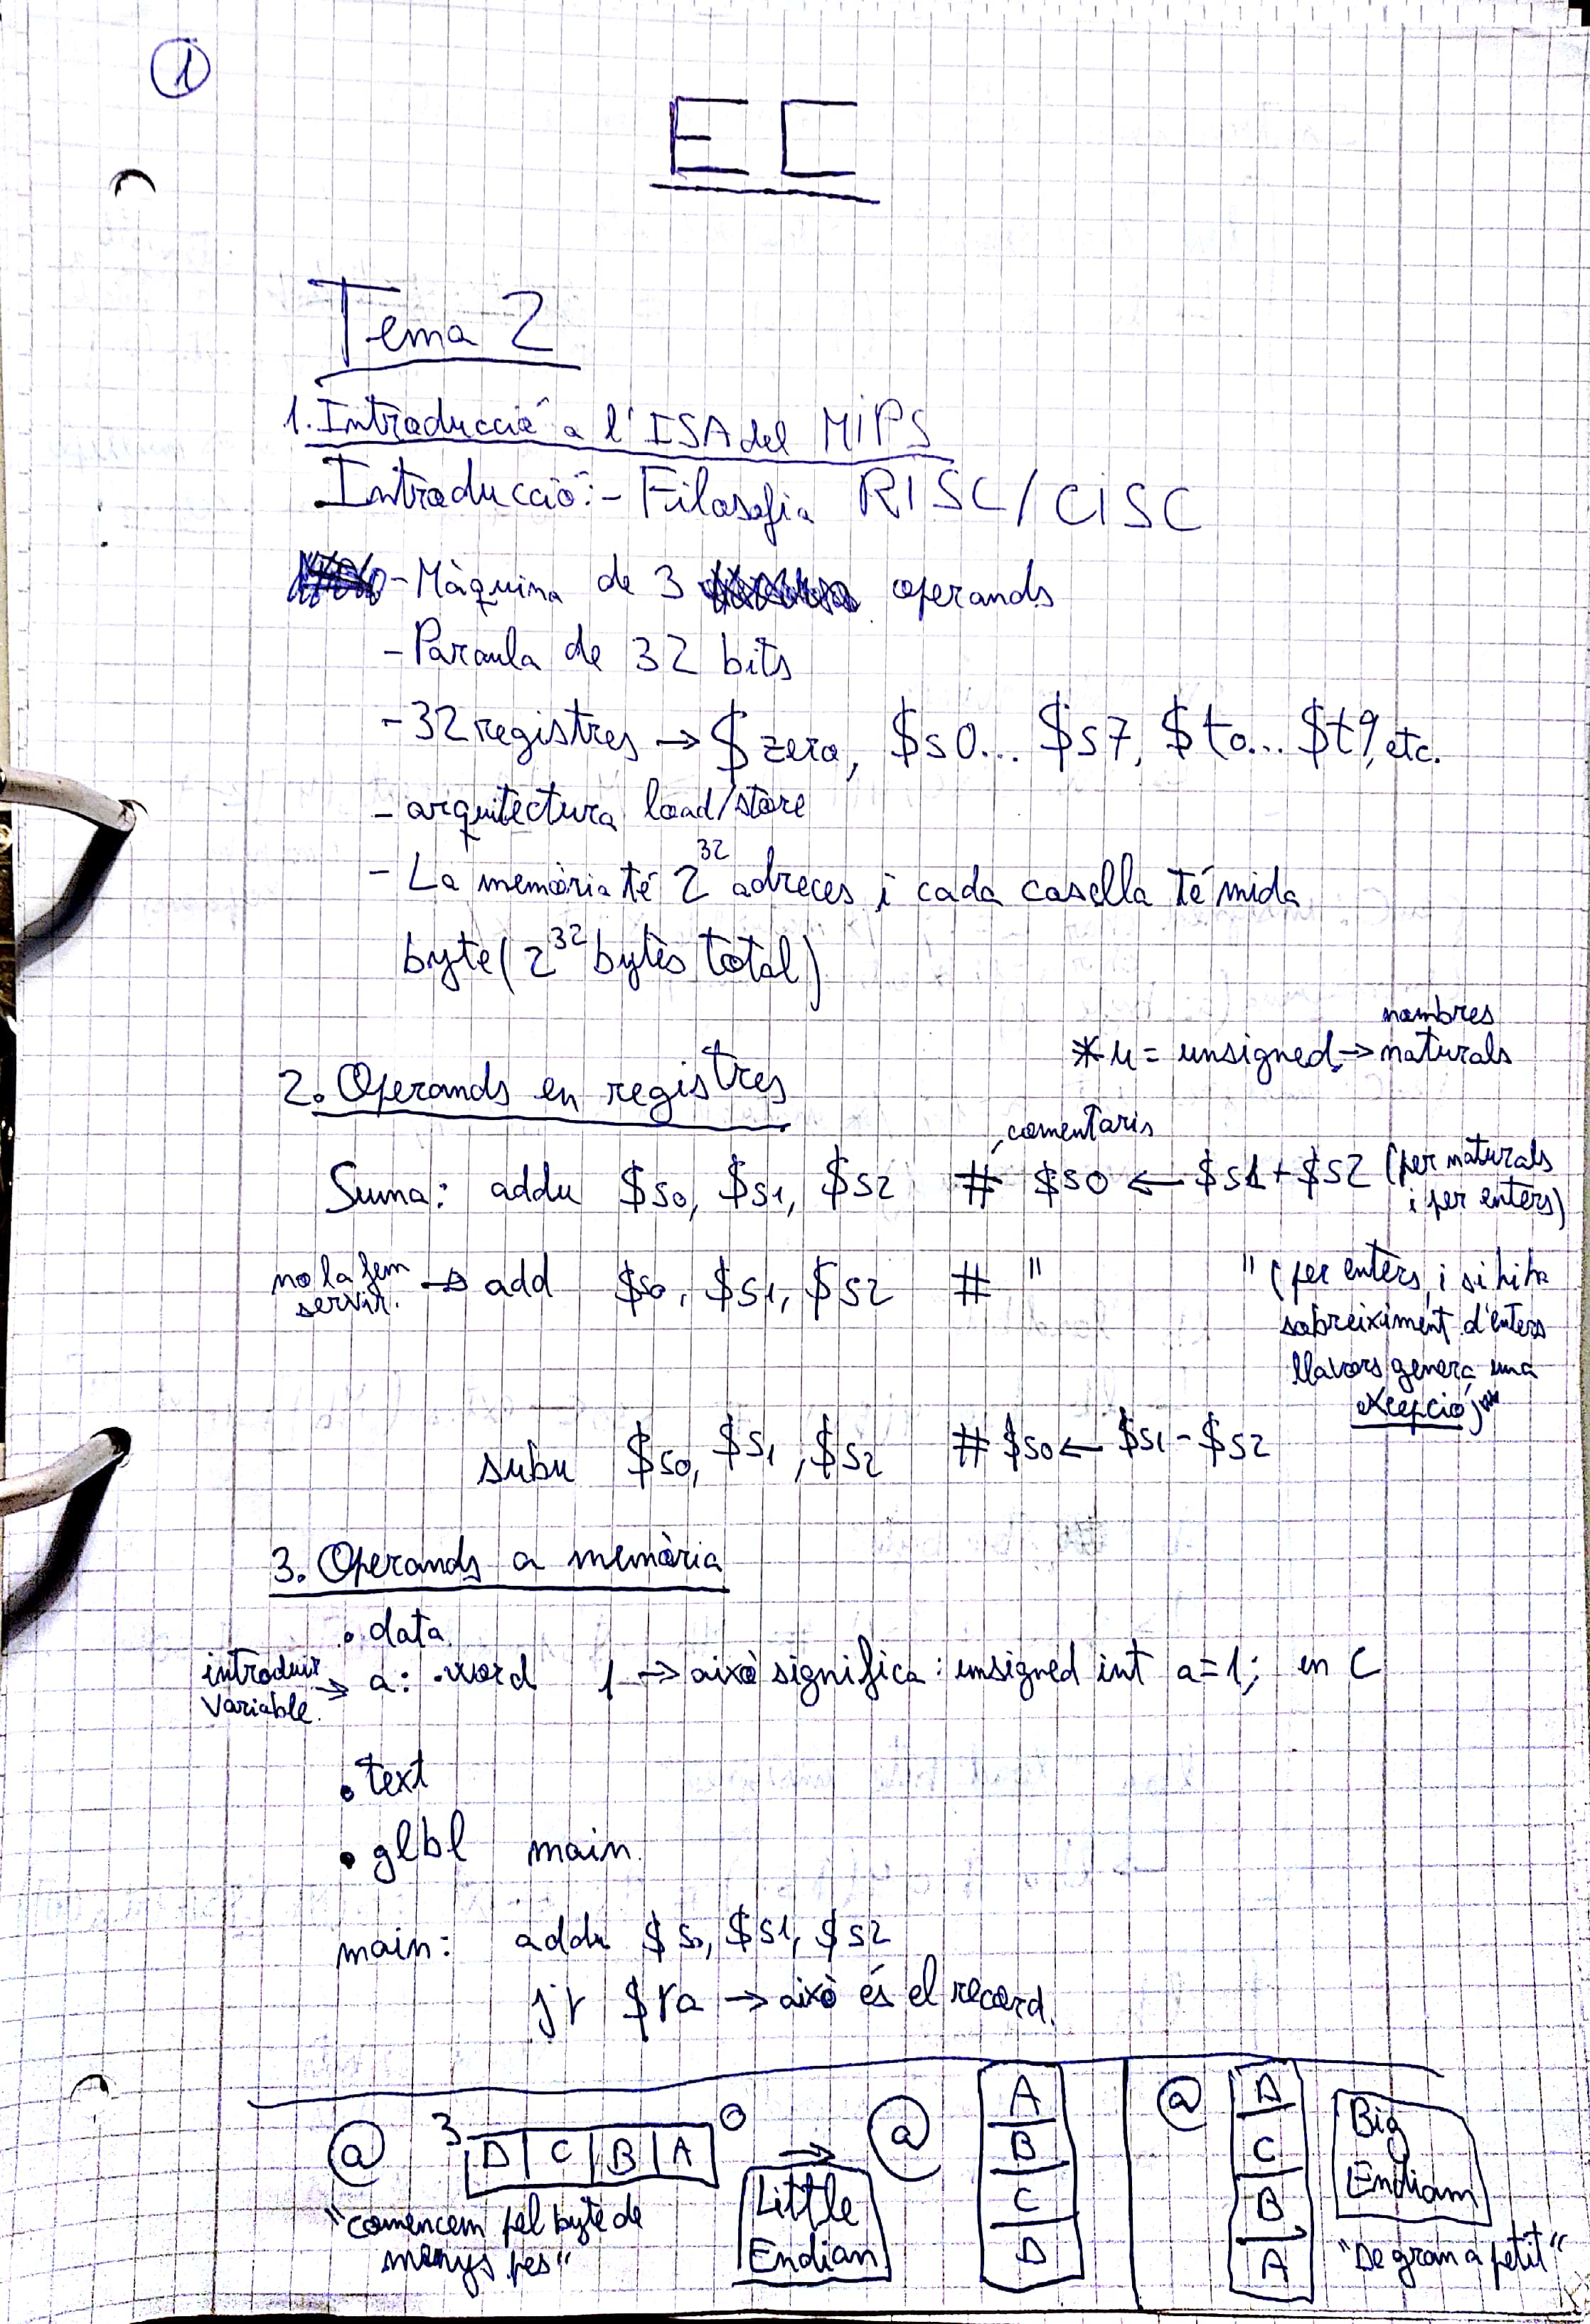 1
EC
Tema 2
1. Introducció a l'ISA del MIPS
Introducció: - Filosofia RISC/CISC
- Màquina de 3 operands
- Paraula de 32 bits
- 32 registres → $zero, $s0... $s7, $t0... $t9, etc.
- arquitectura load/store
- La memòria té 2^32 adreces i cada casella té mida
byte (2^32 bytes total)
nombres
* u = unsigned → naturals
2. Operands en registres
comentaris
Suma: addu $s0, $s1, $s2 # $s0 ← $s1 + $s2 (per naturals
i per enters)
no la fem
servir. → add $s0, $s1, $s2 # " " (per enters, i si hi ha
sobreiximent d'enters
llavors genera una
excepció)
subu $s0, $s1, $s2 # $s0 ← $s1 - $s2
3. Operands a memòria
.data
introduir
variable → a: .word 1 → això significa: unsigned int a=1; en C
.text
.glbl main
main: addu $s0, $s1, $s2
jr $ra → això és el record.
@ 3 D C B A 0 → @ A B C D
"comencem pel byte de
menys pes"
Little
Endian
@ D C B A
Big
Endian
"De gran a petit"